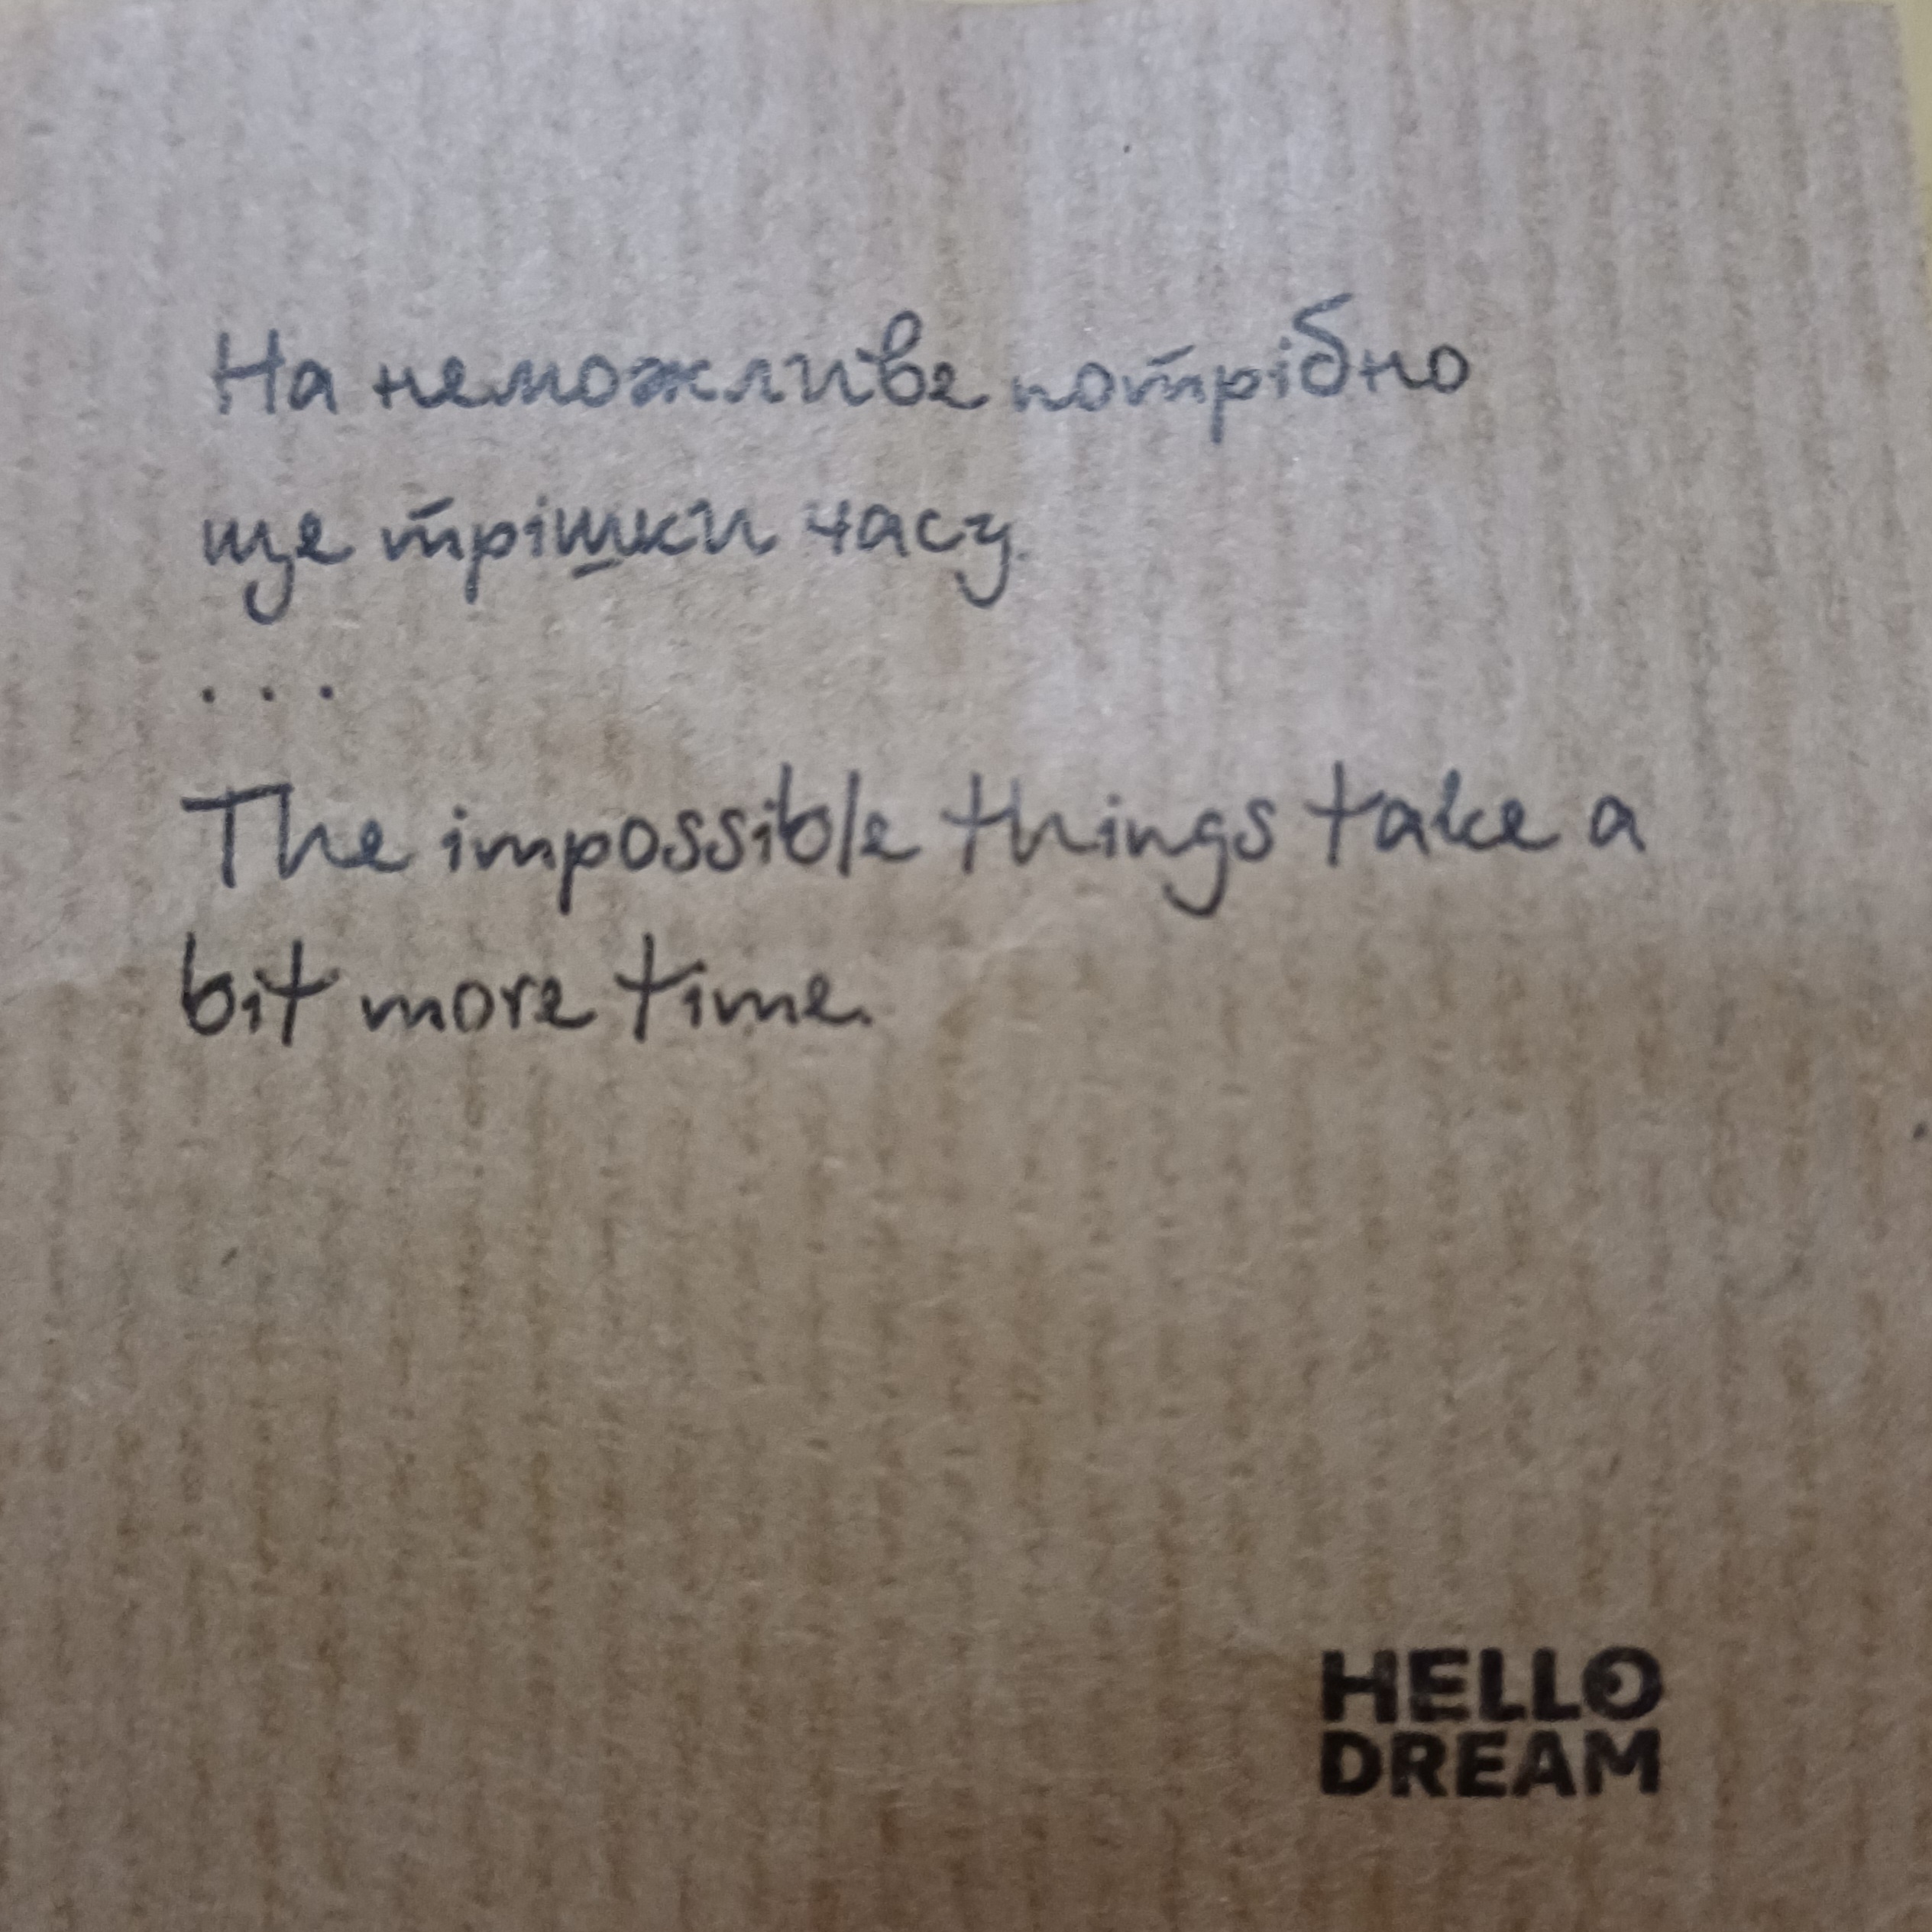 На неможливе потрібно
ще трішки часу.
...
The impossible things take a
bit more time.
HELLO
DREAM